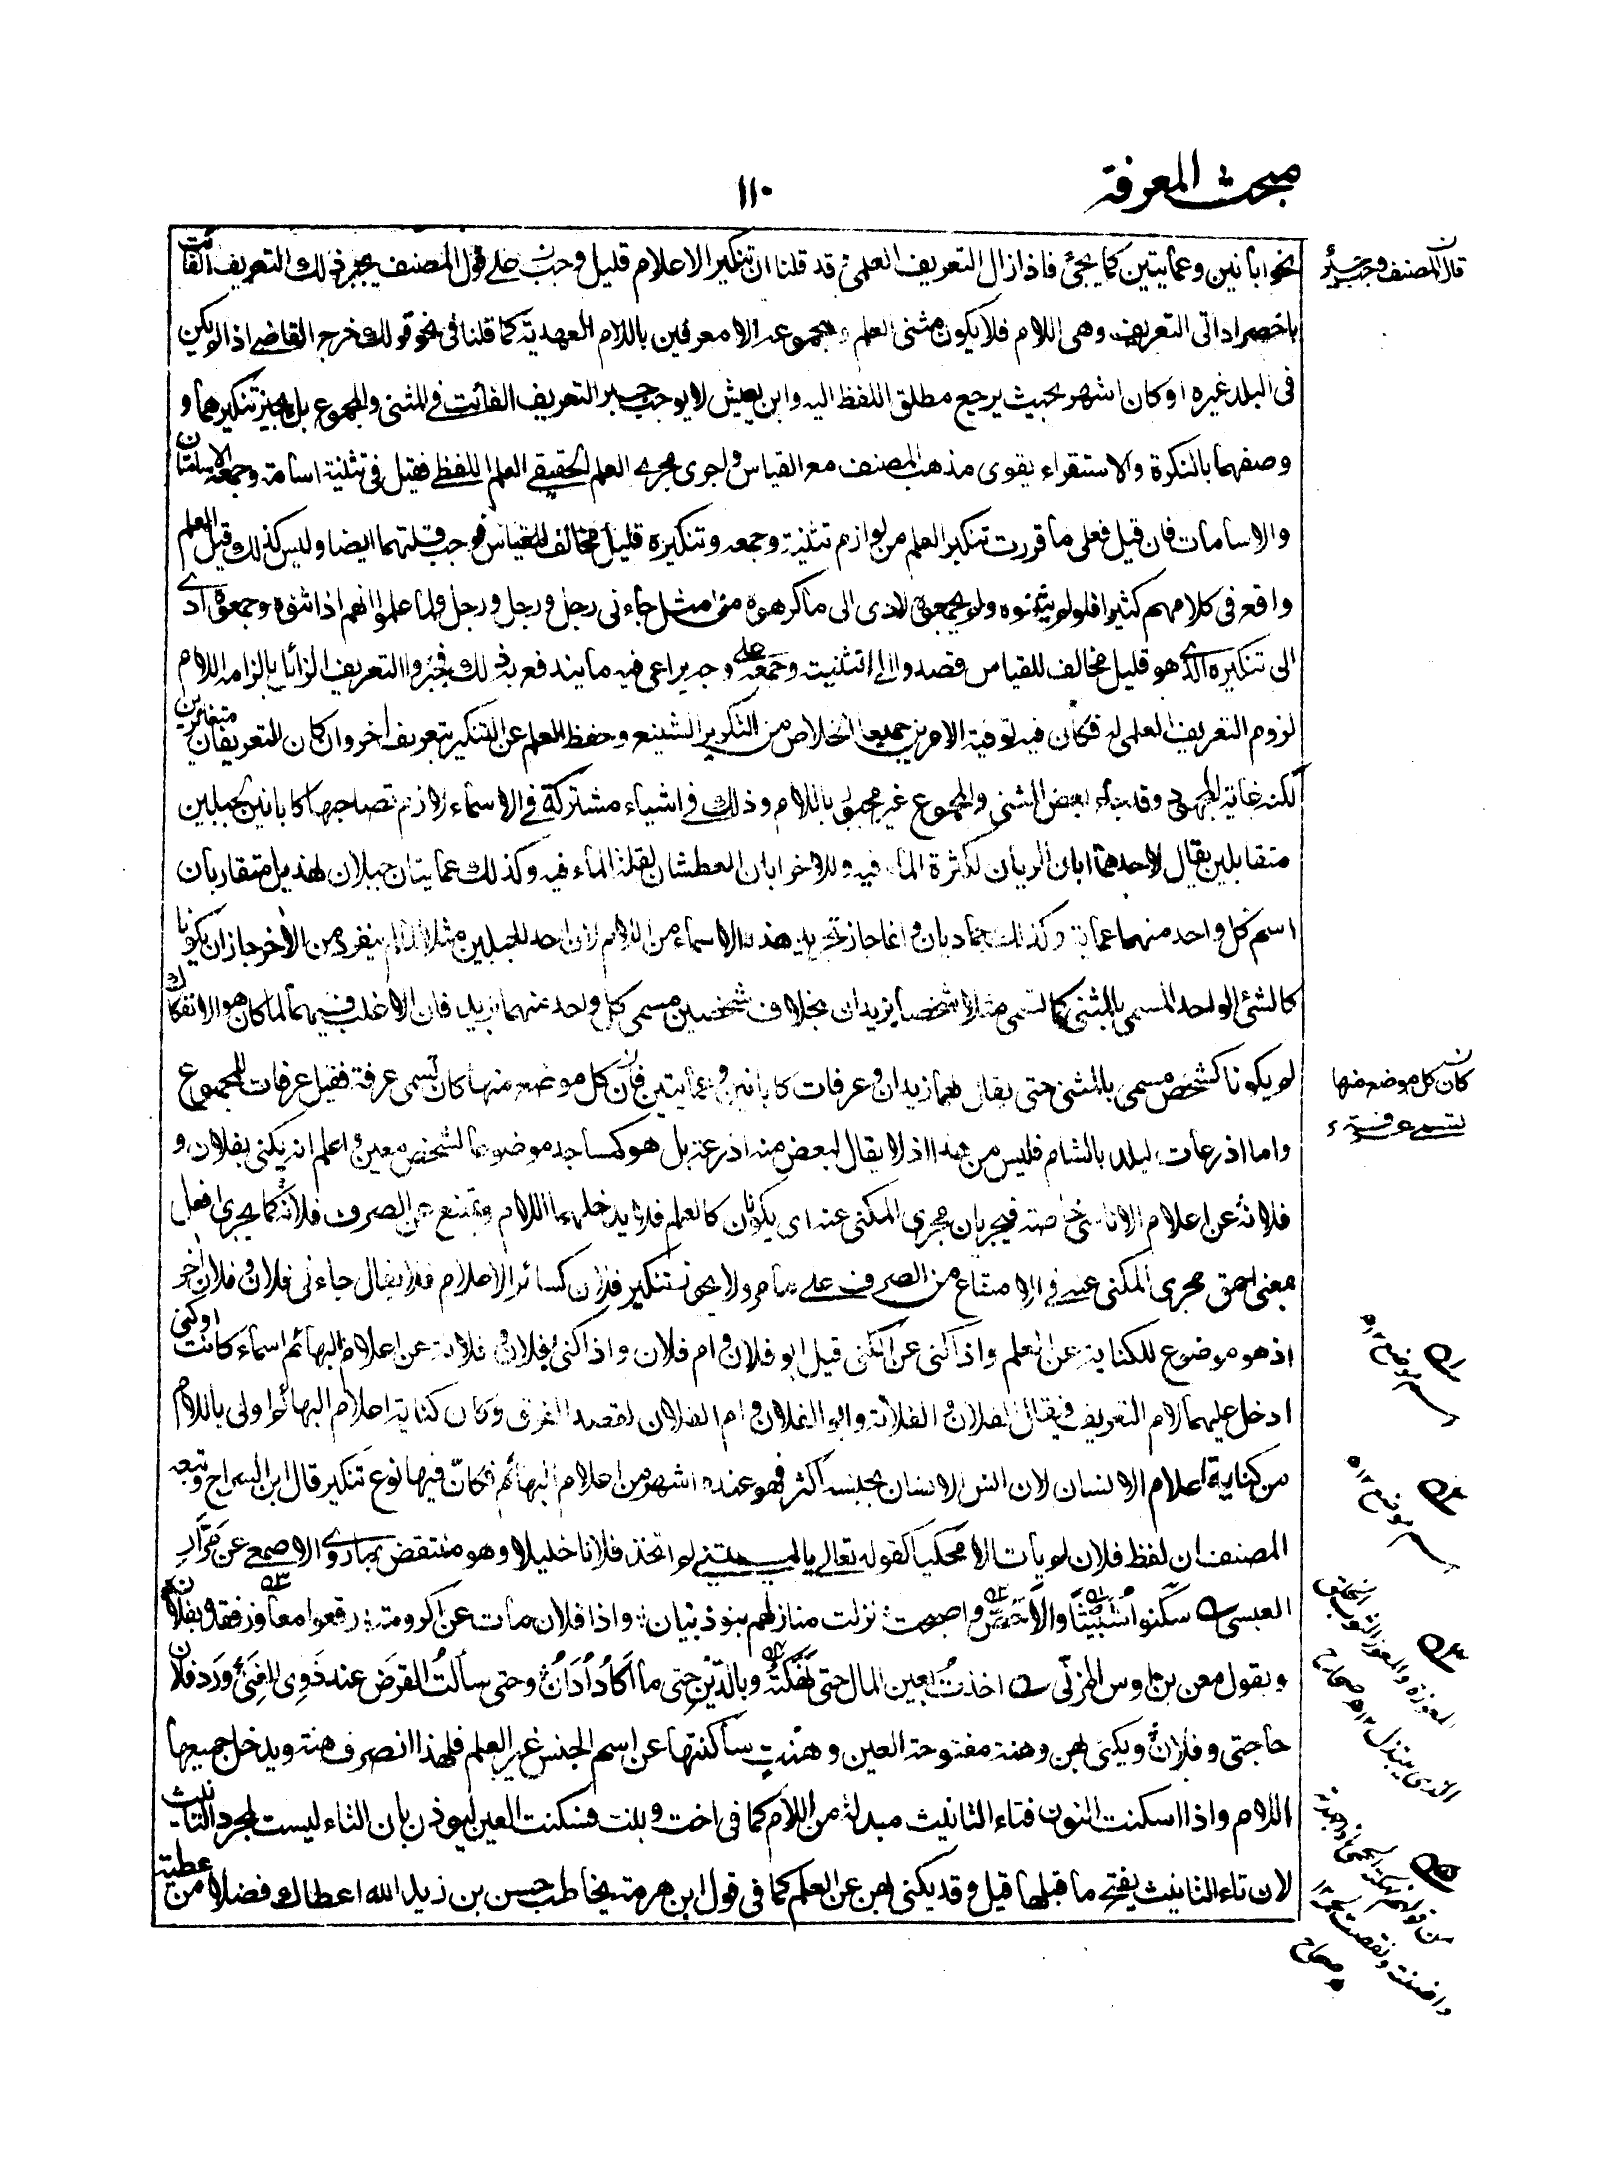 مبحث المعرفة
١١٠
نحو ابانين وعمايتين كما يجئ فاذا زال التعريف العلمى قد قلنا ان تنكير الاعلام قليل وجب على قول المصنف جبر ذلك التعريف الفائت
باخصر اداتى التعريف وهى اللام فلا يكون مثنى العلم ومجموعه الا معرفين باللام العهدية كما قلنا فى نحو قولك خرج القاضى اذا لم يكن
فى البلد غيره او كان اشهر بحيث يرجع مطلق اللفظ اليه وابن يعيش لا يوجب جبر التعريف الفائت فى المثنى والمجموع بل يجيز تنكيرهما و
وصفهما بالنكرة والاستقراء يقوى مذهب المصنف مع القياس واجرى مجرى العلم الحقيقى العلم اللفظى فقيل فى تثنية اسامة وجمعه الاسامتان
والاسامات فان قيل فعلى ما قررت تنكير العلم من لوازم تثنيته وجمعه وتنكيره قليل مخالف للقياس فوجب قلتهما ايضا وليس كذلك قيل العلم
واقع فى كلامهم كثيرا فلو لم يثنوه ولم يجمعوه لادى الى ما كرهوه من مثل جاءنى رجل ورجل ورجل ولما علموا انهم اذا ثنوه وجمعوه ادى
الى تنكيره الذى هو قليل مخالف للقياس قصدوا الى التثنية وجمعه على وجه يراعى فيه ما يندفع به ذلك فجبروا التعريف الزائل بالزامه اللام
لزوم التعريف العلمى له فكان فيه توفية الامرين جميعا الخلاص من التكرير الشنيع وحفظ العلم عن التنكير بتعريف اخر وان كان التعريفان متغايرين
متقابلين يقال لاحدهما ابان الريان لكثرة الماء فيه وللاخر ابان العطشان لقلة الماء فيه وكذلك عمايتان جبلان لهذيل متقاربان
اسم كل واحد منهما عماية وكذلك جماديان وانما جاز تجريد هذه الاسماء من اللام لان احد الجبلين مثلا لما لم ينفرد من الاخر جاز ان يكونا
كالشئ الواحد المسمى بالمثنى كما تسمى مثلا شخصا بزيدان بخلاف شخصين مسمى كل واحد منهما بزيد فان الاغلب فيهما لما كان هو الانفكاك
لم يكونا كشخص مسمى بالمثنى حتى يقال لهما زيدان وعرفات كابانين وعمايتين فان كل موضع منها كان تسمى عرفة فقيل عرفات للمجموع
واما اذرعات لبلد بالشام فليس من هذا اذ لا يقال لبعض منه اذرعة بل هو كمساجد موضوعا لشخص معين واعلم انه يكنى بفلان و
فلانة عن اعلام الاناسى خاصة فيجريان مجرى المكنى عنه اى يكونان كالعلم فلا يدخلهما اللام ويمتنع من الصرف فلانة كما يجرى افعل
بمعنى احمق مجرى المكنى عنه فى الامتناع من الصرف على ما مر ولا يجوز تنكير فلان كسائر الاعلام فلا يقال جاءنى فلان وفلان اخر
اذ هو موضوع للكناية عن العلم واذا كنى عن الكنى قيل ابو فلان وام فلان واذا كنى بفلان وفلانة عن اعلام البهائم اسماء كانت او كنى
ادخل عليهما لام التعريف فيقال الفلان والفلانة وابو الفلان وام الفلان لقصد الفرق وكان كناية اعلام البهائم اولى باللام
من كناية اعلام الانسان لان انس الانسان بجنسه اكثر فهو عنده اشهر من اعلام البهائم فكان فيها نوع تنكير قال ابن السراج وتبعه
المصنف ان لفظ فلان لم يات الا محكيا كقوله تعالى يا ليتنى لم اتخذ فلانا خليلا وهو منتقض بما روى الاصمعى عن مرار
العبسى سكنوا شبيثا والاحص واصبحت نزلت منازلهم بنو ذبيان واذا فلان مات عن اكرومة رقعوا معاوز فقده بفلان
وبقول معن بن اوس المزنى اخذت بعين المال حتى نهكته وبالدين حتى ما اكاد ادان وحتى سألت القرض عند ذوى الغنى ورد فلان
حاجتى وفلان ويكنى بهن وهنة مفتوحة العين وهنت ساكنتها عن اسم الجنس غير العلم فلهذا انصرف هنة ويدخل جميعها
اللام واذا اسكنت النون فتاء التانيث مبدلة من اللام كما فى اخت وبنت فسكنت العين ليوذن بان التاء ليست لمجرد التانيث
لان تاء التانيث يفتح ما قبلها قيل وقد يكنى بهن عن العلم كما فى قول ابن هرمة يخاطب حسن بن زيد الله اعطاك فضلا من عطيته
كان كل موضع منها
تسمى عرفة